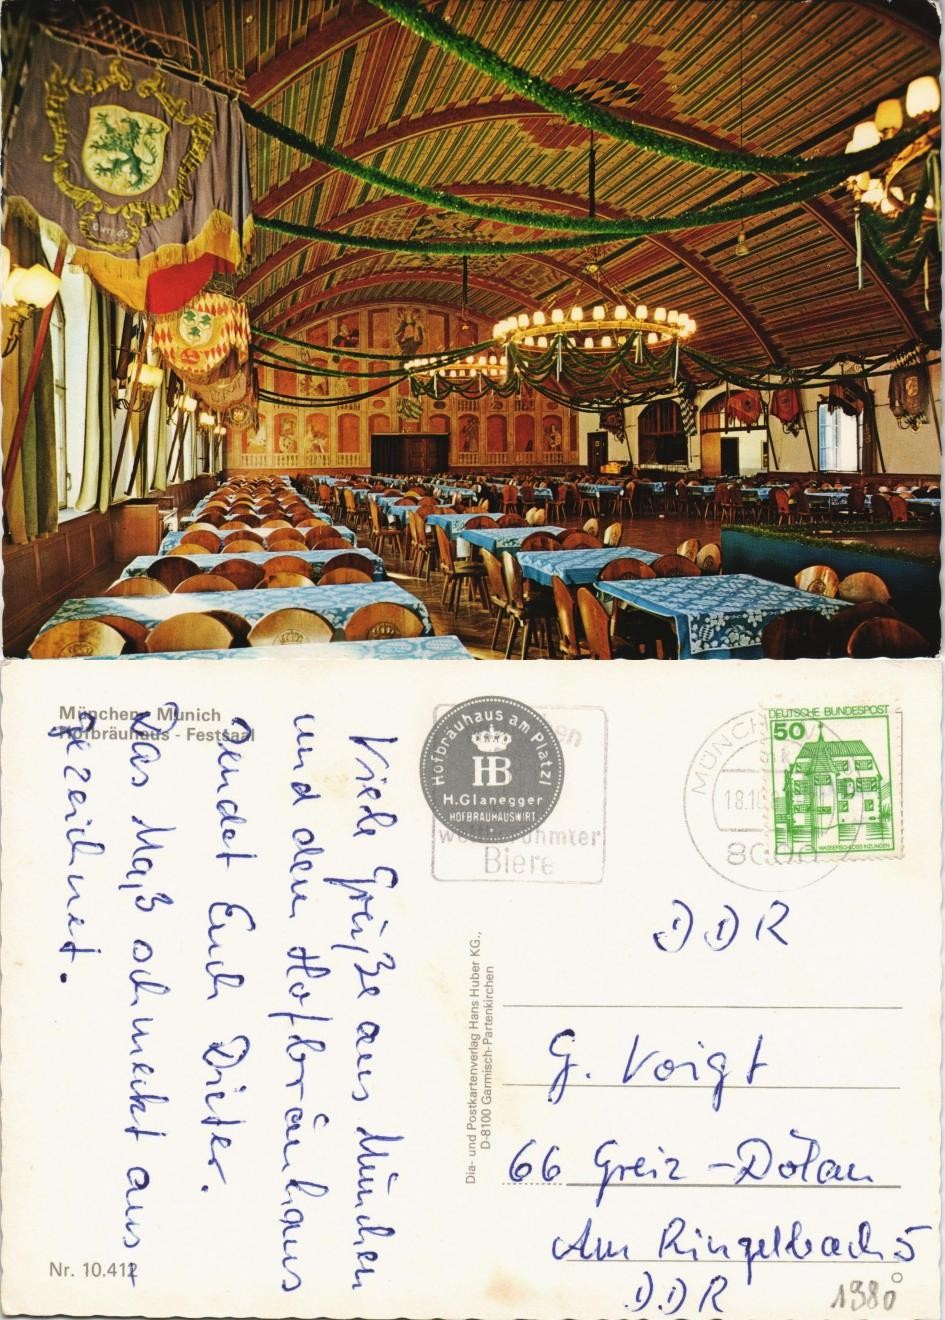 München - Munich
Hofbräuhaus - Festsaal
Viele Grüße aus München
und dem Hofbräuhaus
sendet Euch Dieter.
Das Maß schmeckt aus-
gezeichnet.
Nr. 10.412
Hofbräuhaus am Platzl
HB
H. Glanegger
HOFBRÄUHAUSWIRT
Biere
Dia- und Postkartenverlag Hans Huber KG.,
D-8100 Garmisch-Partenkirchen
MÜNCH
18.10
DEUTSCHE BUNDESPOST
50
WASSERSCHLOSS INZLINGEN
DDR
G. Voigt
66 Greiz-Dölau
Am Ringelbach 5
DDR
1980